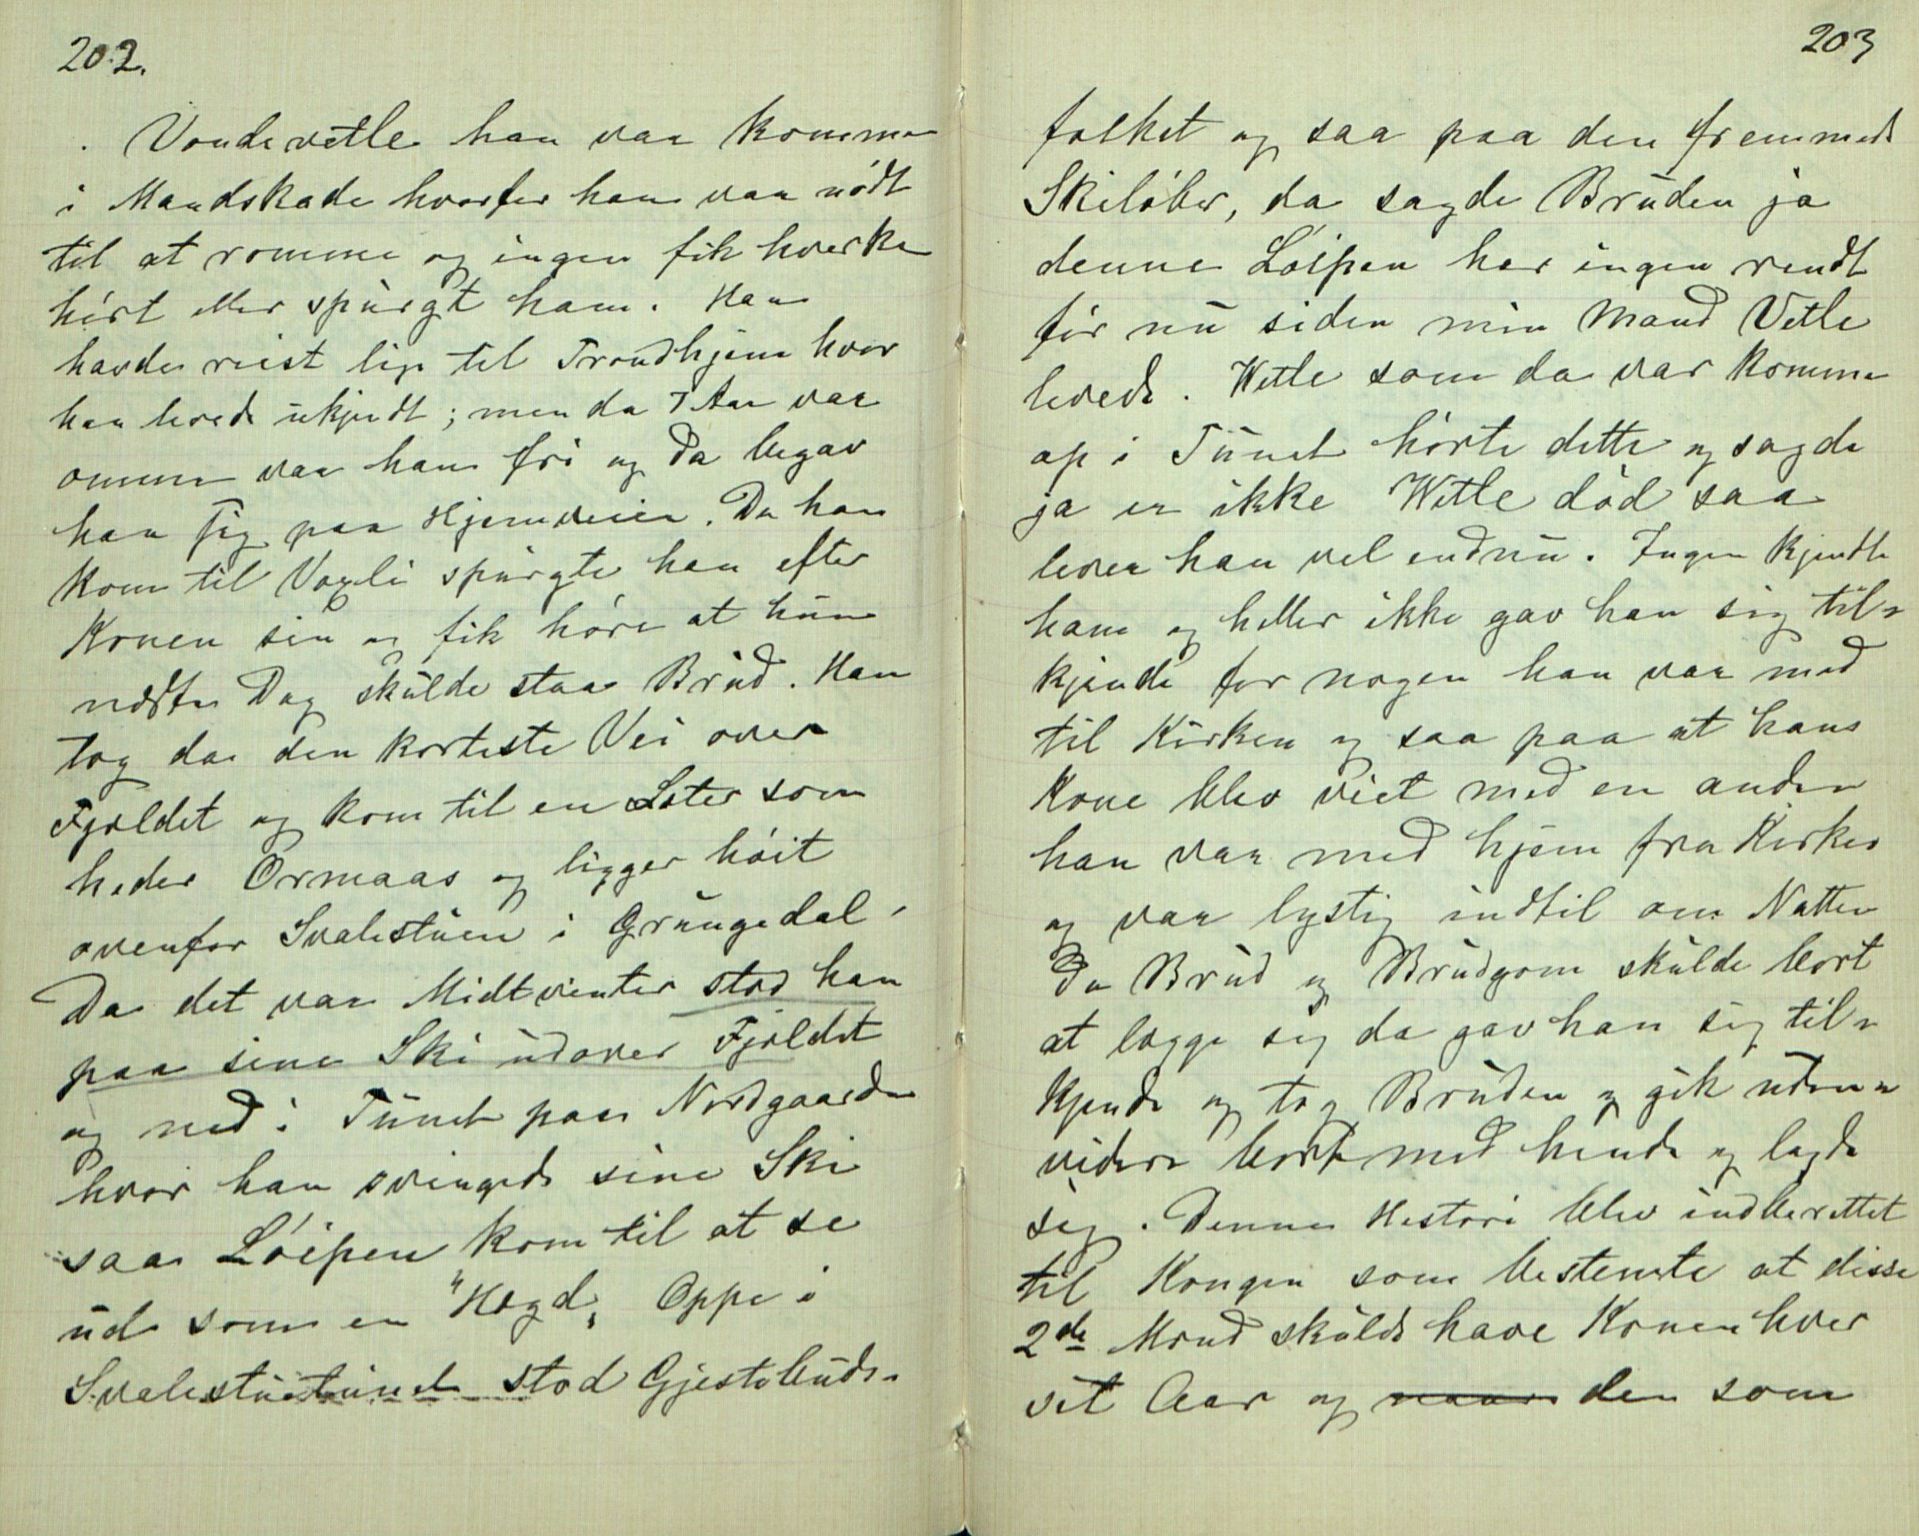 202.
Vondevetle han var komme
i Mandskade hvorfor han var nødt
til at rømme og ingen fik hverken
hørt eller spurgt ham. Han
havde reist lige til Trondhjem hvor
han levede ukjendt; men da 7 Aar var
omme var han fri og da begav
han sig paa Hjemveien. Da han
kom til Vaxli spurgte han efter
Konen sin og fik høre at hun
næste Dag skulde staa Brud. Han
tog da den korteste Vei over
Fjeldet og kom til en Sæter som
heder Ormaas og ligger høit
ovenfor Svalestuen i Grungedal.
Da det var Midtvinter stod han
paa sine Ski udover Fjeldet
og ned i Tunet paa Nordgaarden
hvor han svingede sine Ski
saa Løipen kom til at se
ud som en "Høgd„ Oppe i
Svalestuetunet stod Gjestebuds-
203
folket og saa paa den fremmede
Skiløber, da sagde Bruden ja
denne Løipen har ingen rendt
før nu siden min Mand Vetle
levede. Wetle som da var komme
op i Tunet hørte dette og sagde
ja er ikke Wetle død saa
lever han vel endnu. Ingen kjendte
ham og heller ikke gav han sig til-
kjende for nogen han var med
til Kirken og saa paa at hans
Kone blev viet med en anden
han var med hjem fra Kirken
og var lystig indtil om Natten
da Brud og Brudgom skulde bort
at lægge sig da gav han sig til-
kjende og tog Bruden og gik uden-
videre bort med hende og lagde
sig. Denne Histori blev indberettet
til Kongen som bestemte at disse
2de Mænd skulde have Konen hver
sit Aar og naar den som